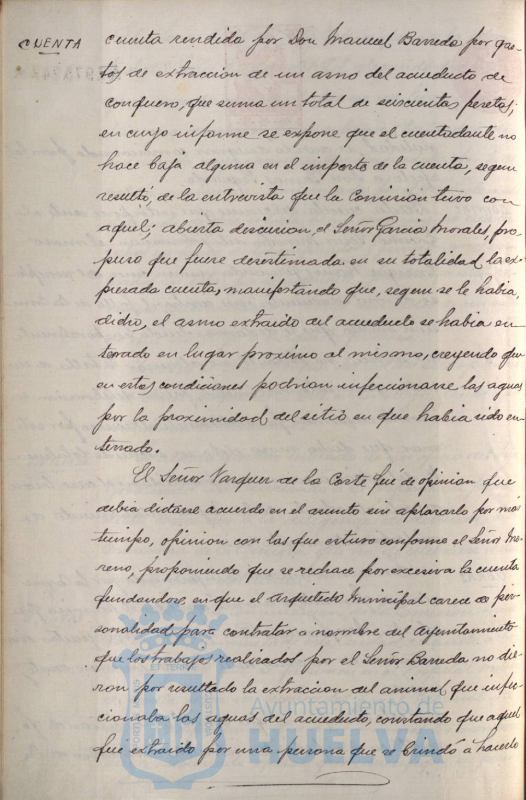 CUENTA
cuenta rendida por Don Manuel Barreda por gas-
tos de extraccion de un asno del acueducto de
conquero, que suma un total de seiscientas pesetas;
en cuyo informe se expone que el cuentadante no
hace baja alguna en el importe de la cuenta, segun
resultó, de la entrevista que la Comision tuvo con
aquel; abierta discusion, el Señor Garcia Morales, pro-
puso que fuere desestimada en su totalidad la ex-
presada cuenta, manifestando que, segun se le habia
dicho, el asno extraido del acueducto se habia en-
terrado en lugar proximo al mismo, creyendo que
en estas condiciones podrian infeccionarse las aguas
por la proximidad del sitio en que habia sido en-
terrado.
El Señor Vazquez de la Corte fué de opinion que
debia dictarse acuerdo en el asunto sin aplazarlo por más
tiempo, opinion con las que estuvo conforme el Señor Mo-
reno, proponiendo que se rechace por excesiva la cuenta
fundandose, en que el Arquitecto Municipal carece de per-
sonalidad para contratar a nombre del Ayuntamiento
que los trabajos realizados por el Señor Barreda no die-
ron por resultado la extraccion del animal que infec-
cionaba las aguas del acueducto, constando que aquel
fue extraido por una persona que se brindó a hacerlo
Ayuntamiento de
HUELVA